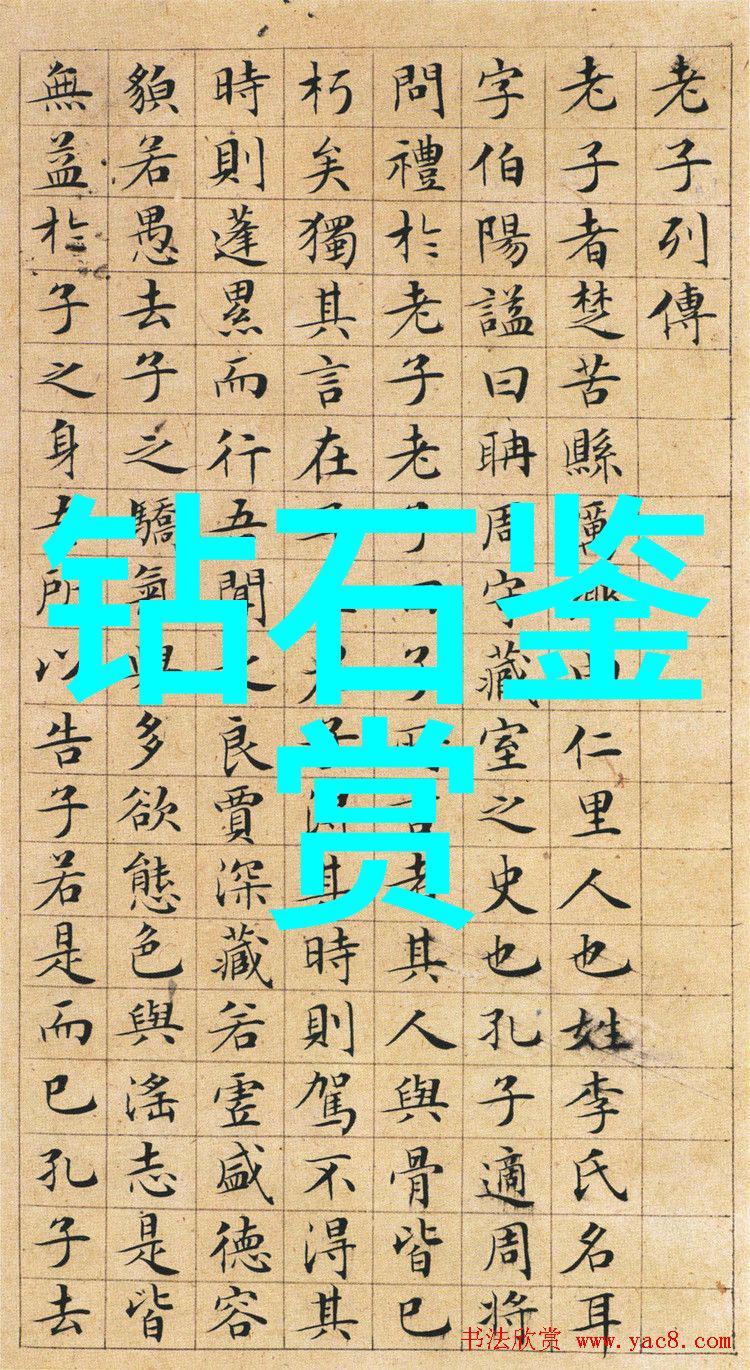 老子列傳
老子者楚苦縣仁里人也姓李氏名耳
字伯陽謚曰聃周守藏室之史也孔子適周將
問禮於老子老子子者其人與骨皆已
朽矣獨其言在其時則駕不得其
時則蓬累而行吾聞之良賈深藏若虛盛德容
貌若愚去子之驕氣與多欲態色與淫志是皆
無益於子之身吾所以告子若是而已孔子去
钻石鉴
赏
书法欣赏 www.yac8.com